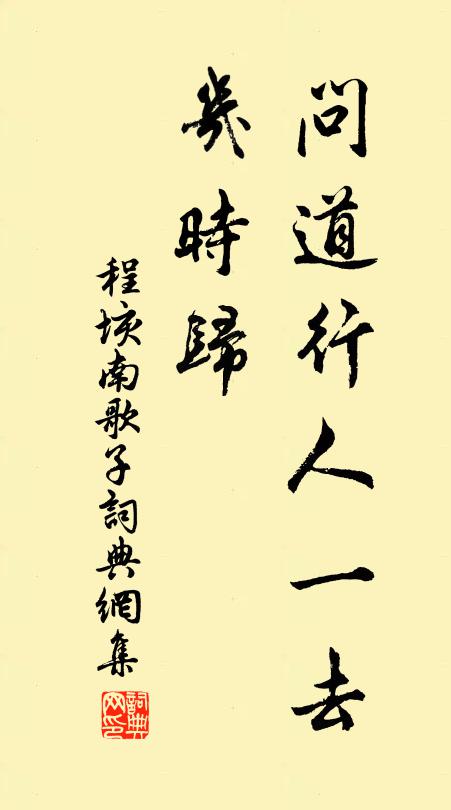 問道行人一去
幾時歸
程垓南歌子詞典網集
詞典网印